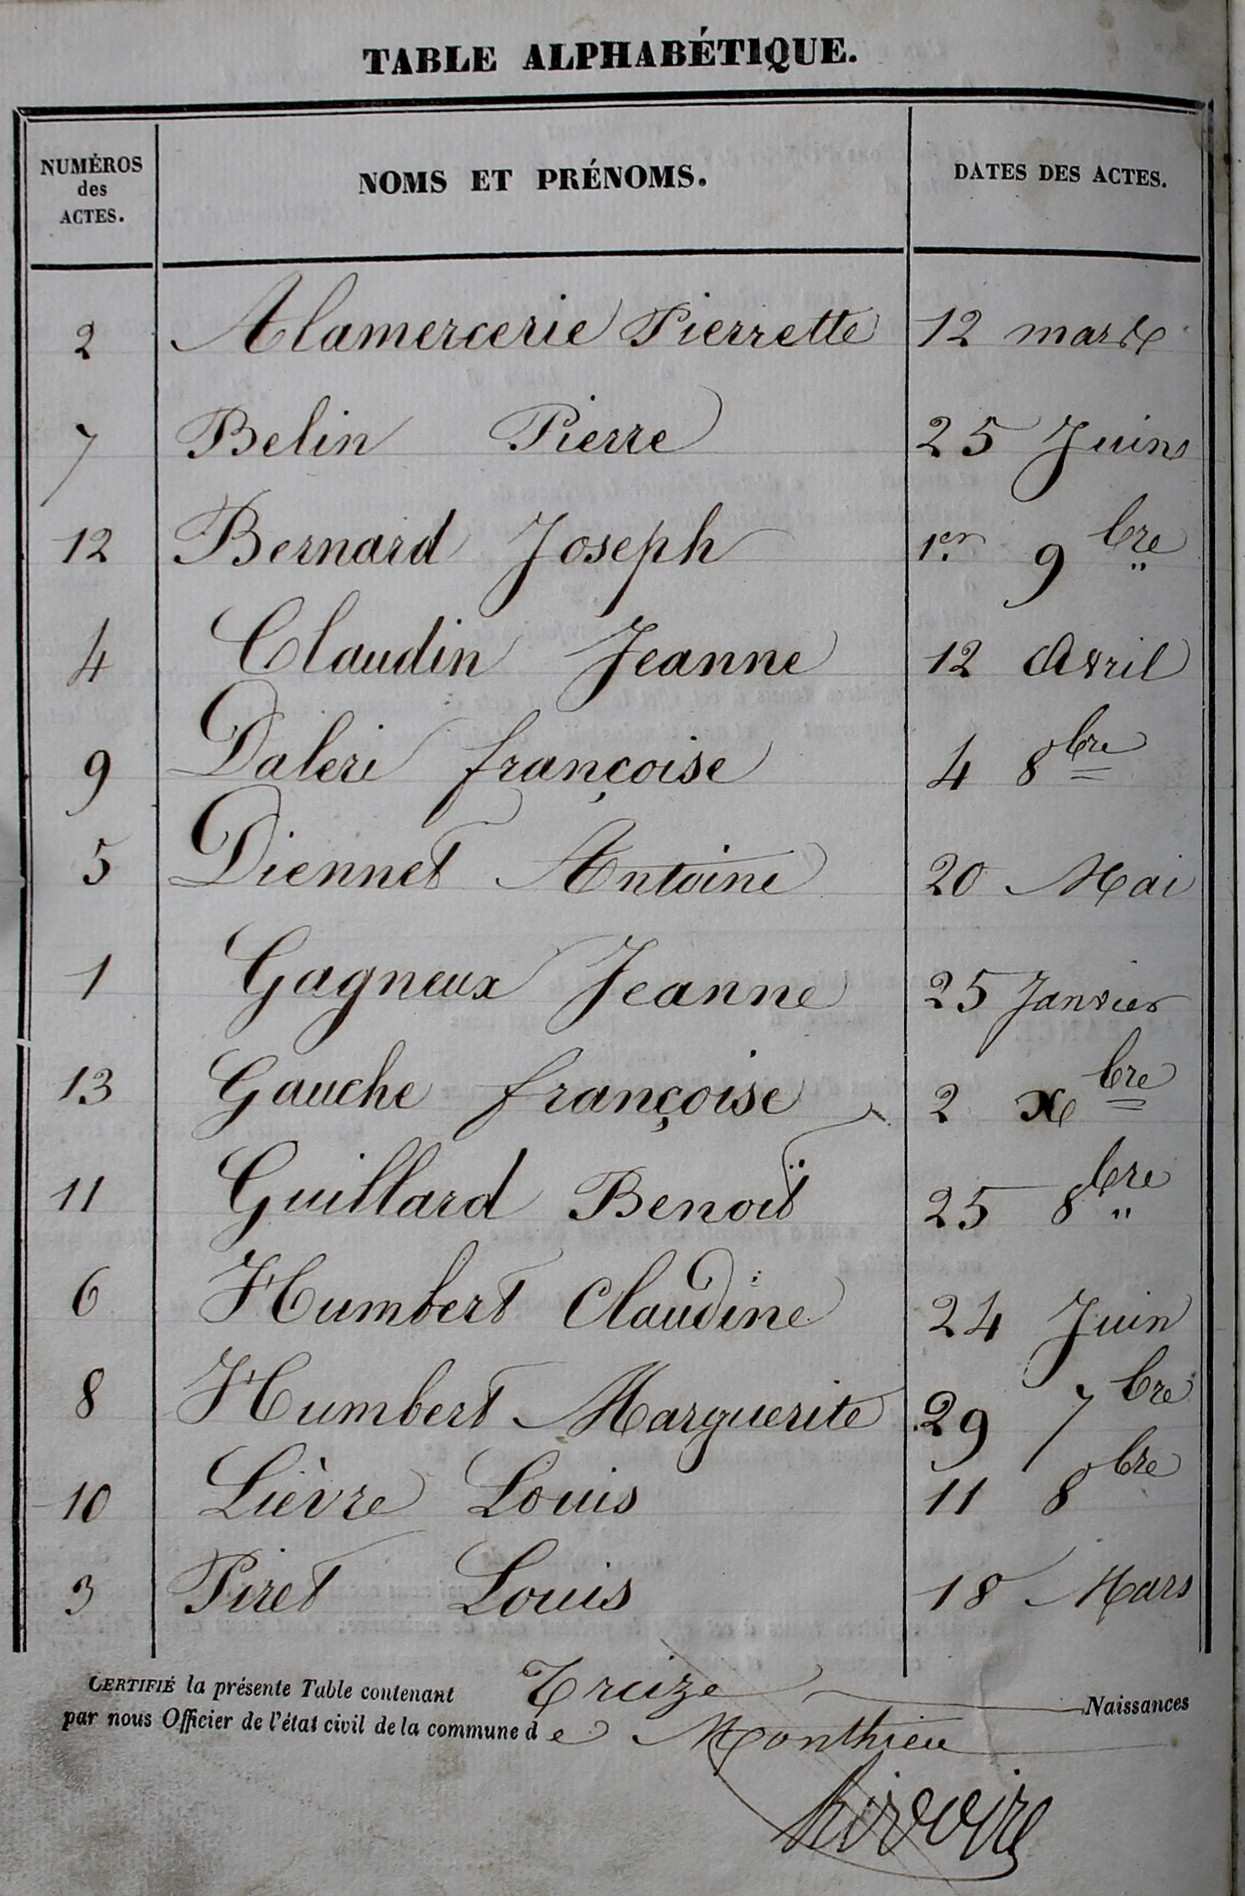 TABLE ALPHABÉTIQUE.
NUMÉROS des ACTES. NOMS ET PRÉNOMS. DATES DES ACTES.
2 Alamercerie Pierrette 12 mars
7 Belin Pierre 25 Juin
12 Bernard Joseph 1er 9bre
4 Claudin Jeanne 12 Avril
9 Daleri françoise 4 8bre
5 Diennet Antoine 20 Mai
1 Gagneux Jeanne 25 Janvier
13 Gauche françoise 2 Xbre
11 Guillard Benoit 25 8bre
6 Humbert Claudine 24 Juin
8 Humbert Marguerite 29 7bre
10 Lièvre Louis 11 8bre
3 Piret Louis 18 Mars
CERTIFIÉ la présente Table contenant Treize Naissances
par nous Officier de l'état civil de la commune de Monthieu
Rivoire